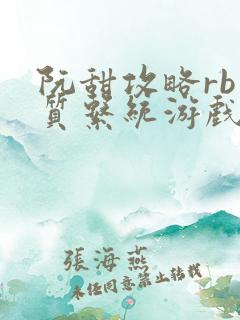 阮甜攻略rb
质系统游戏
張海燕
未经同意禁止转载